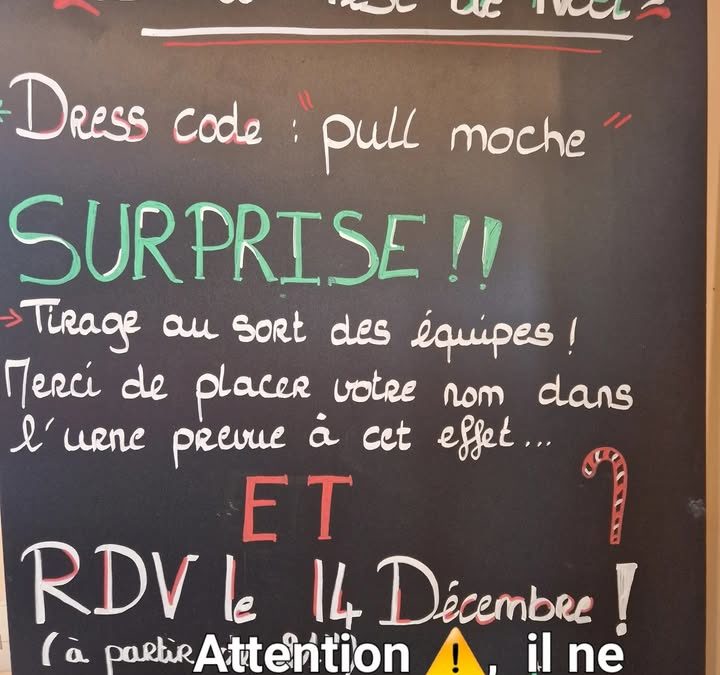 de Noël
Dress code : "pull moche"
SURPRISE !!
→ Tirage au sort des équipes !
Merci de placer votre nom dans
l'urne prevue à cet effet...
ET
RDV le 14 Décembre !
(à partir
Attention ⚠️, il ne